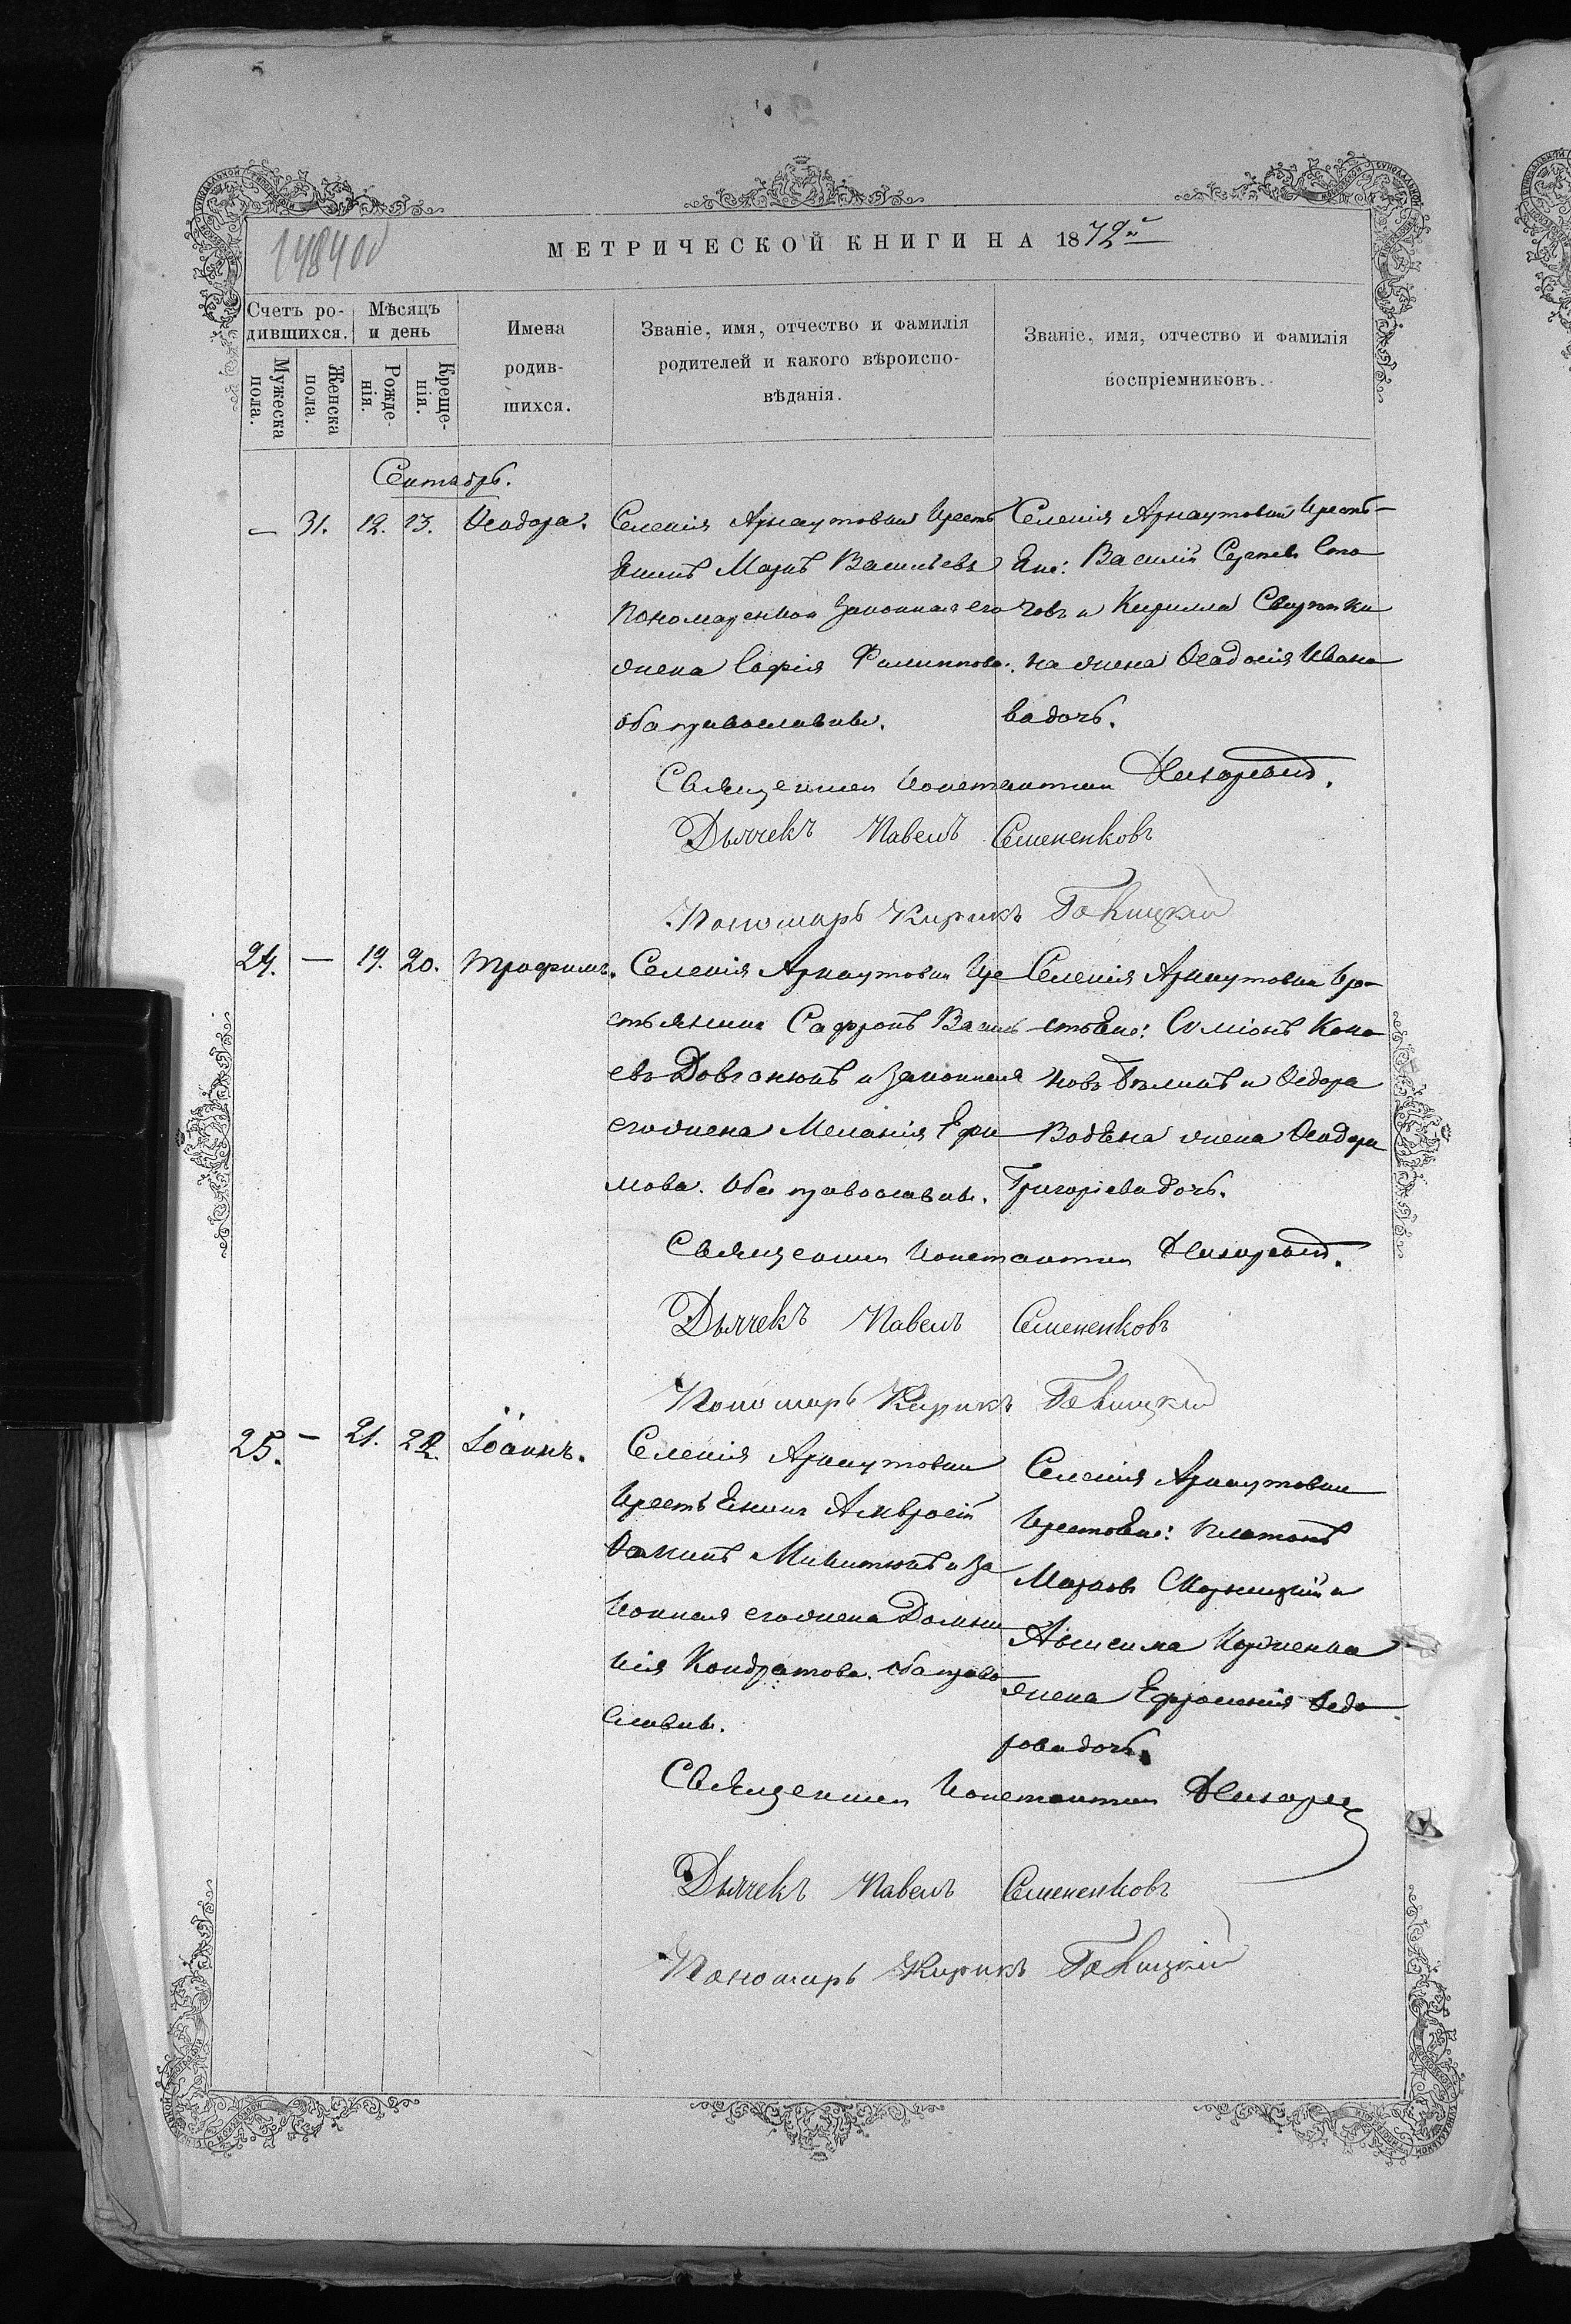 МЕТРИЧЕСКОЙ КНИГИ НА 1872
Счетъ ро-
дившихся.
Мѣсяцъ
и день
Мужеска
пола.
Женска
пола.
Рожде-
нія.
Креще-
нія.
Имена
родив-
шихся.
Званіе, имя, отчество и фамилія
родителей и какого вѣроиспо-
вѣданія.
Званіе, имя, отчество и фамилія
воспріемниковъ.
Сентябрь.
— 31. 12. 13. Ѳеодора.
Селенія Арнаутовки Кресть
янинъ Маркъ Васильевъ
Пономаренко и законная его
жена Софія Филиппова.
оба православные.
Селенія Арнаутовки Крестъ-
яне: Василій Сергіевъ
и Кирилла
жена Ѳеодосія Ивано
ва дочь.
Священникъ Константинъ
Дьячекъ Павелъ Семененковъ
Пономарь Кирикъ
24. — 19. 20. Трофимъ.
Селенія Арнаутовки Кре
стьянинъ Сафронъ Василь
евъ Довганюкъ и законная
его жена Меланія Ефи
мова. Оба православные.
Селенія Арнаутовки Кре-
стьяне: Симіонъ
и Ѳедора
жена Ѳеодора
Григоріева дочь.
Священникъ Константинъ
Дьячекъ Павелъ Семененковъ
Пономарь Кирикъ
25. — 21. 22. Іоаннъ.
Селенія Арнаутовки
Крестьянинъ Амвросій
Микитюкъ и за
конная его жена Домни
кія Кондратова. оба право
славные.
Селенія Арнаутовки
Крестьяне: Платонъ
Марковъ и
Анисима
жена Ефросинія Ѳедо
рова дочь.
Священникъ Константинъ
Дьячекъ Павелъ Семененковъ
Пономарь Кирикъ